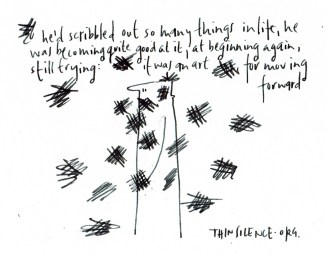 he'd scribbled out so many things in life, he
was becoming quite good at it, at beginning again,
still trying: it was an art for moving
forward
THINSILENCE.ORG.